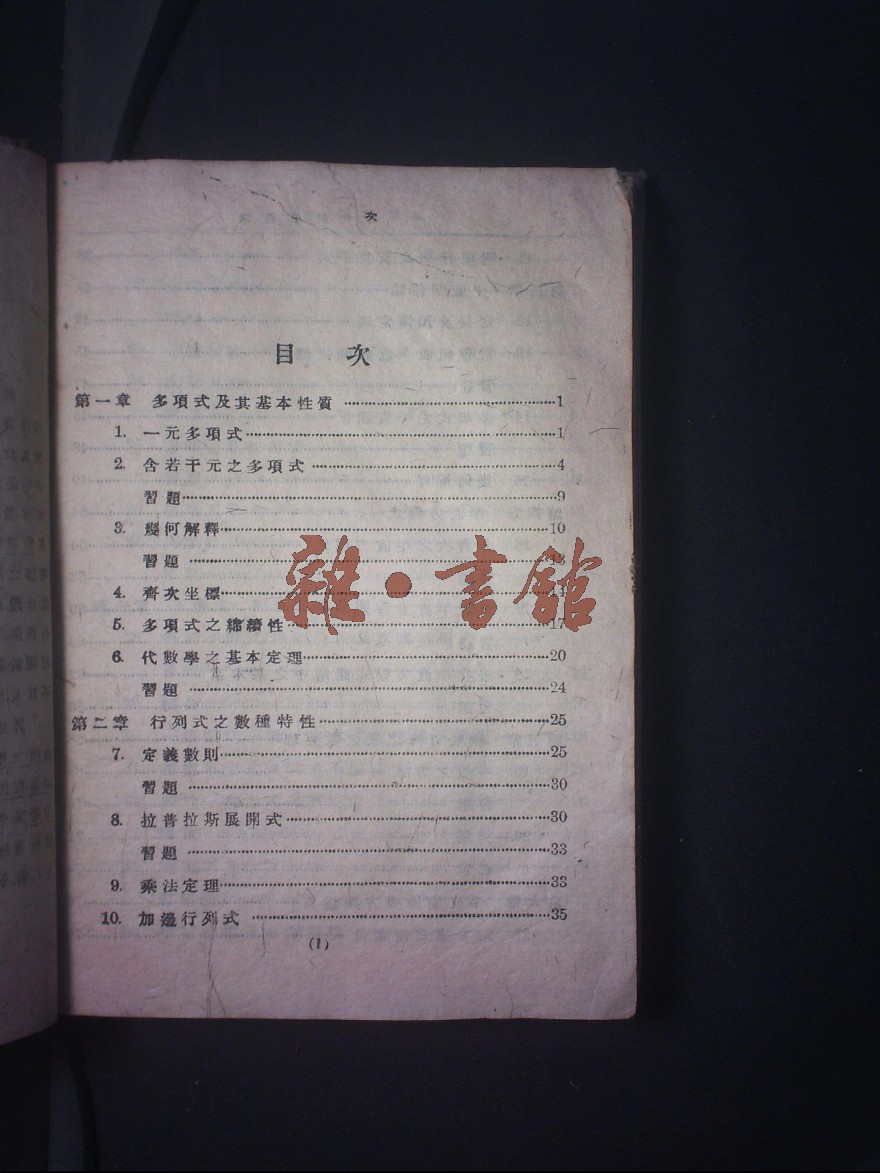 次
目 次
第一章 多項式及其基本性質 ……1
1. 一元多項式……1
2. 含若干元之多項式……4
習題……9
3. 幾何解釋……10
習題……
4. 齊次坐標……
5. 多項式之綿續性……17
6. 代數學之基本定理……20
習題……24
第二章 行列式之數種特性……25
7. 定義數則……25
習題……30
8. 拉普拉斯展開式……30
習題……33
9. 乘法定理……33
10. 加邊行列式……35
(1)
雜·書館